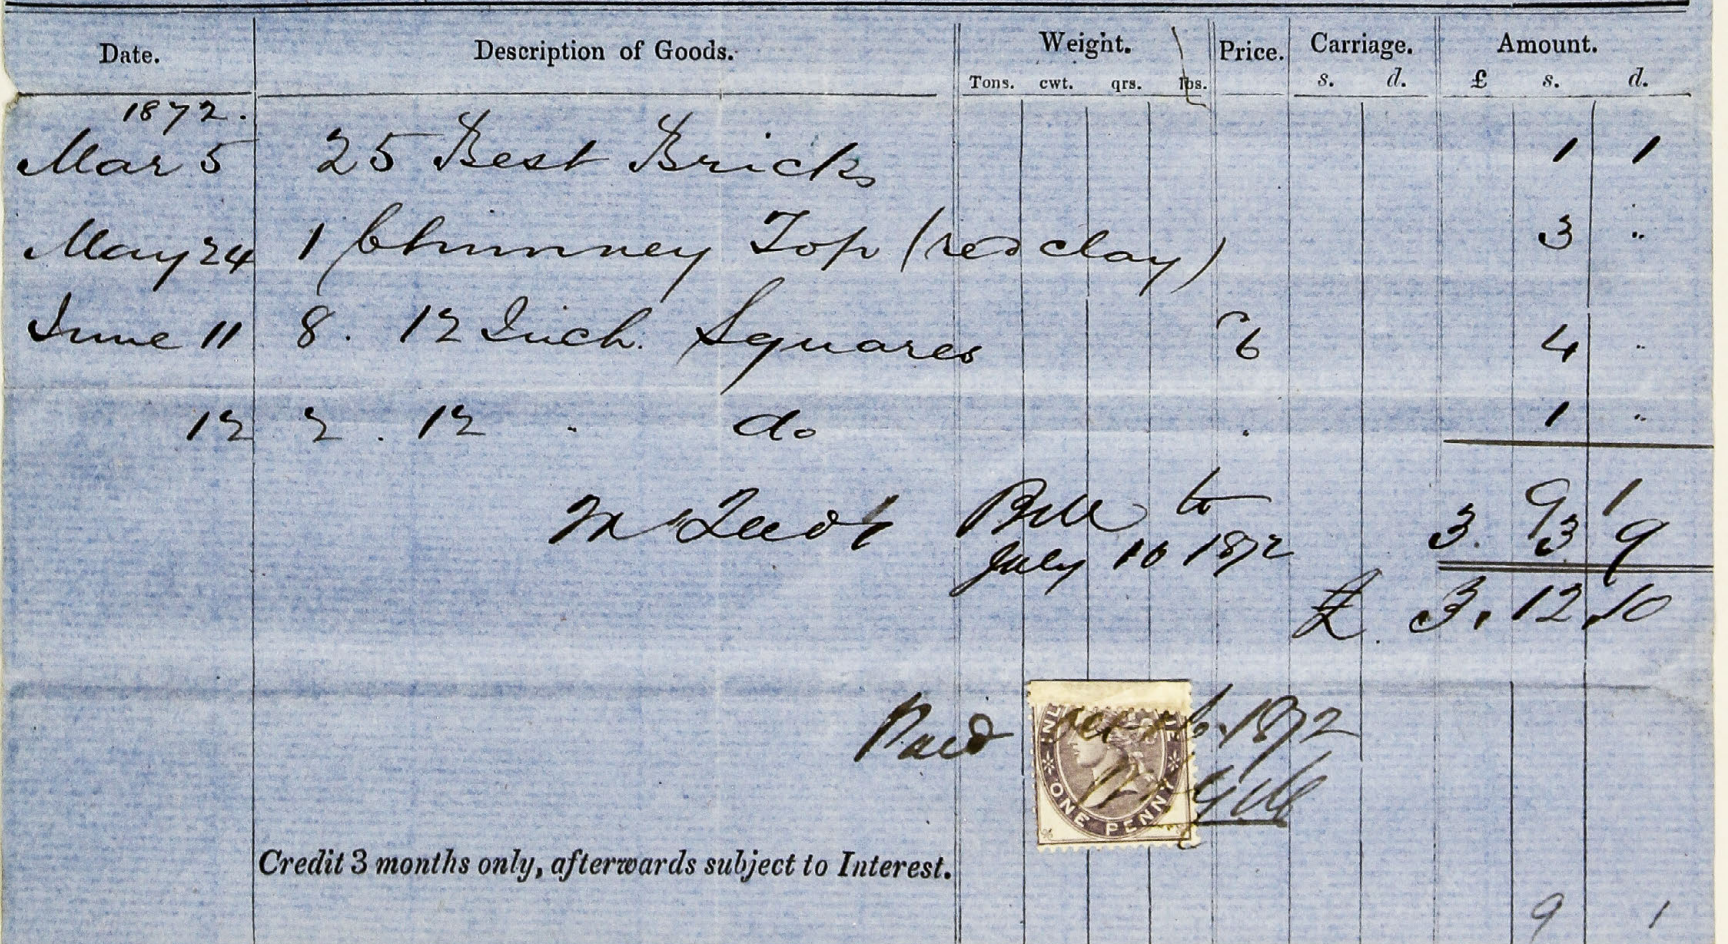 Date. Description of Goods. Weight. Price. Carriage. Amount.
Tons. cwt. qrs. lbs. s. d. £ s. d.
1872.
Mar 5 25 Best Bricks 1 1
May 24 1 Chimney Top (red clay) 3 "
June 11 8. 12 Inch. Squares 6 4 "
12 2. 12 " do 1 "
9 1
Bill to July 10 1872 3. 3 9
£ 3. 12. 10
Paid 1872
INL
ONE PENNY
Credit 3 months only, afterwards subject to Interest.
9 1